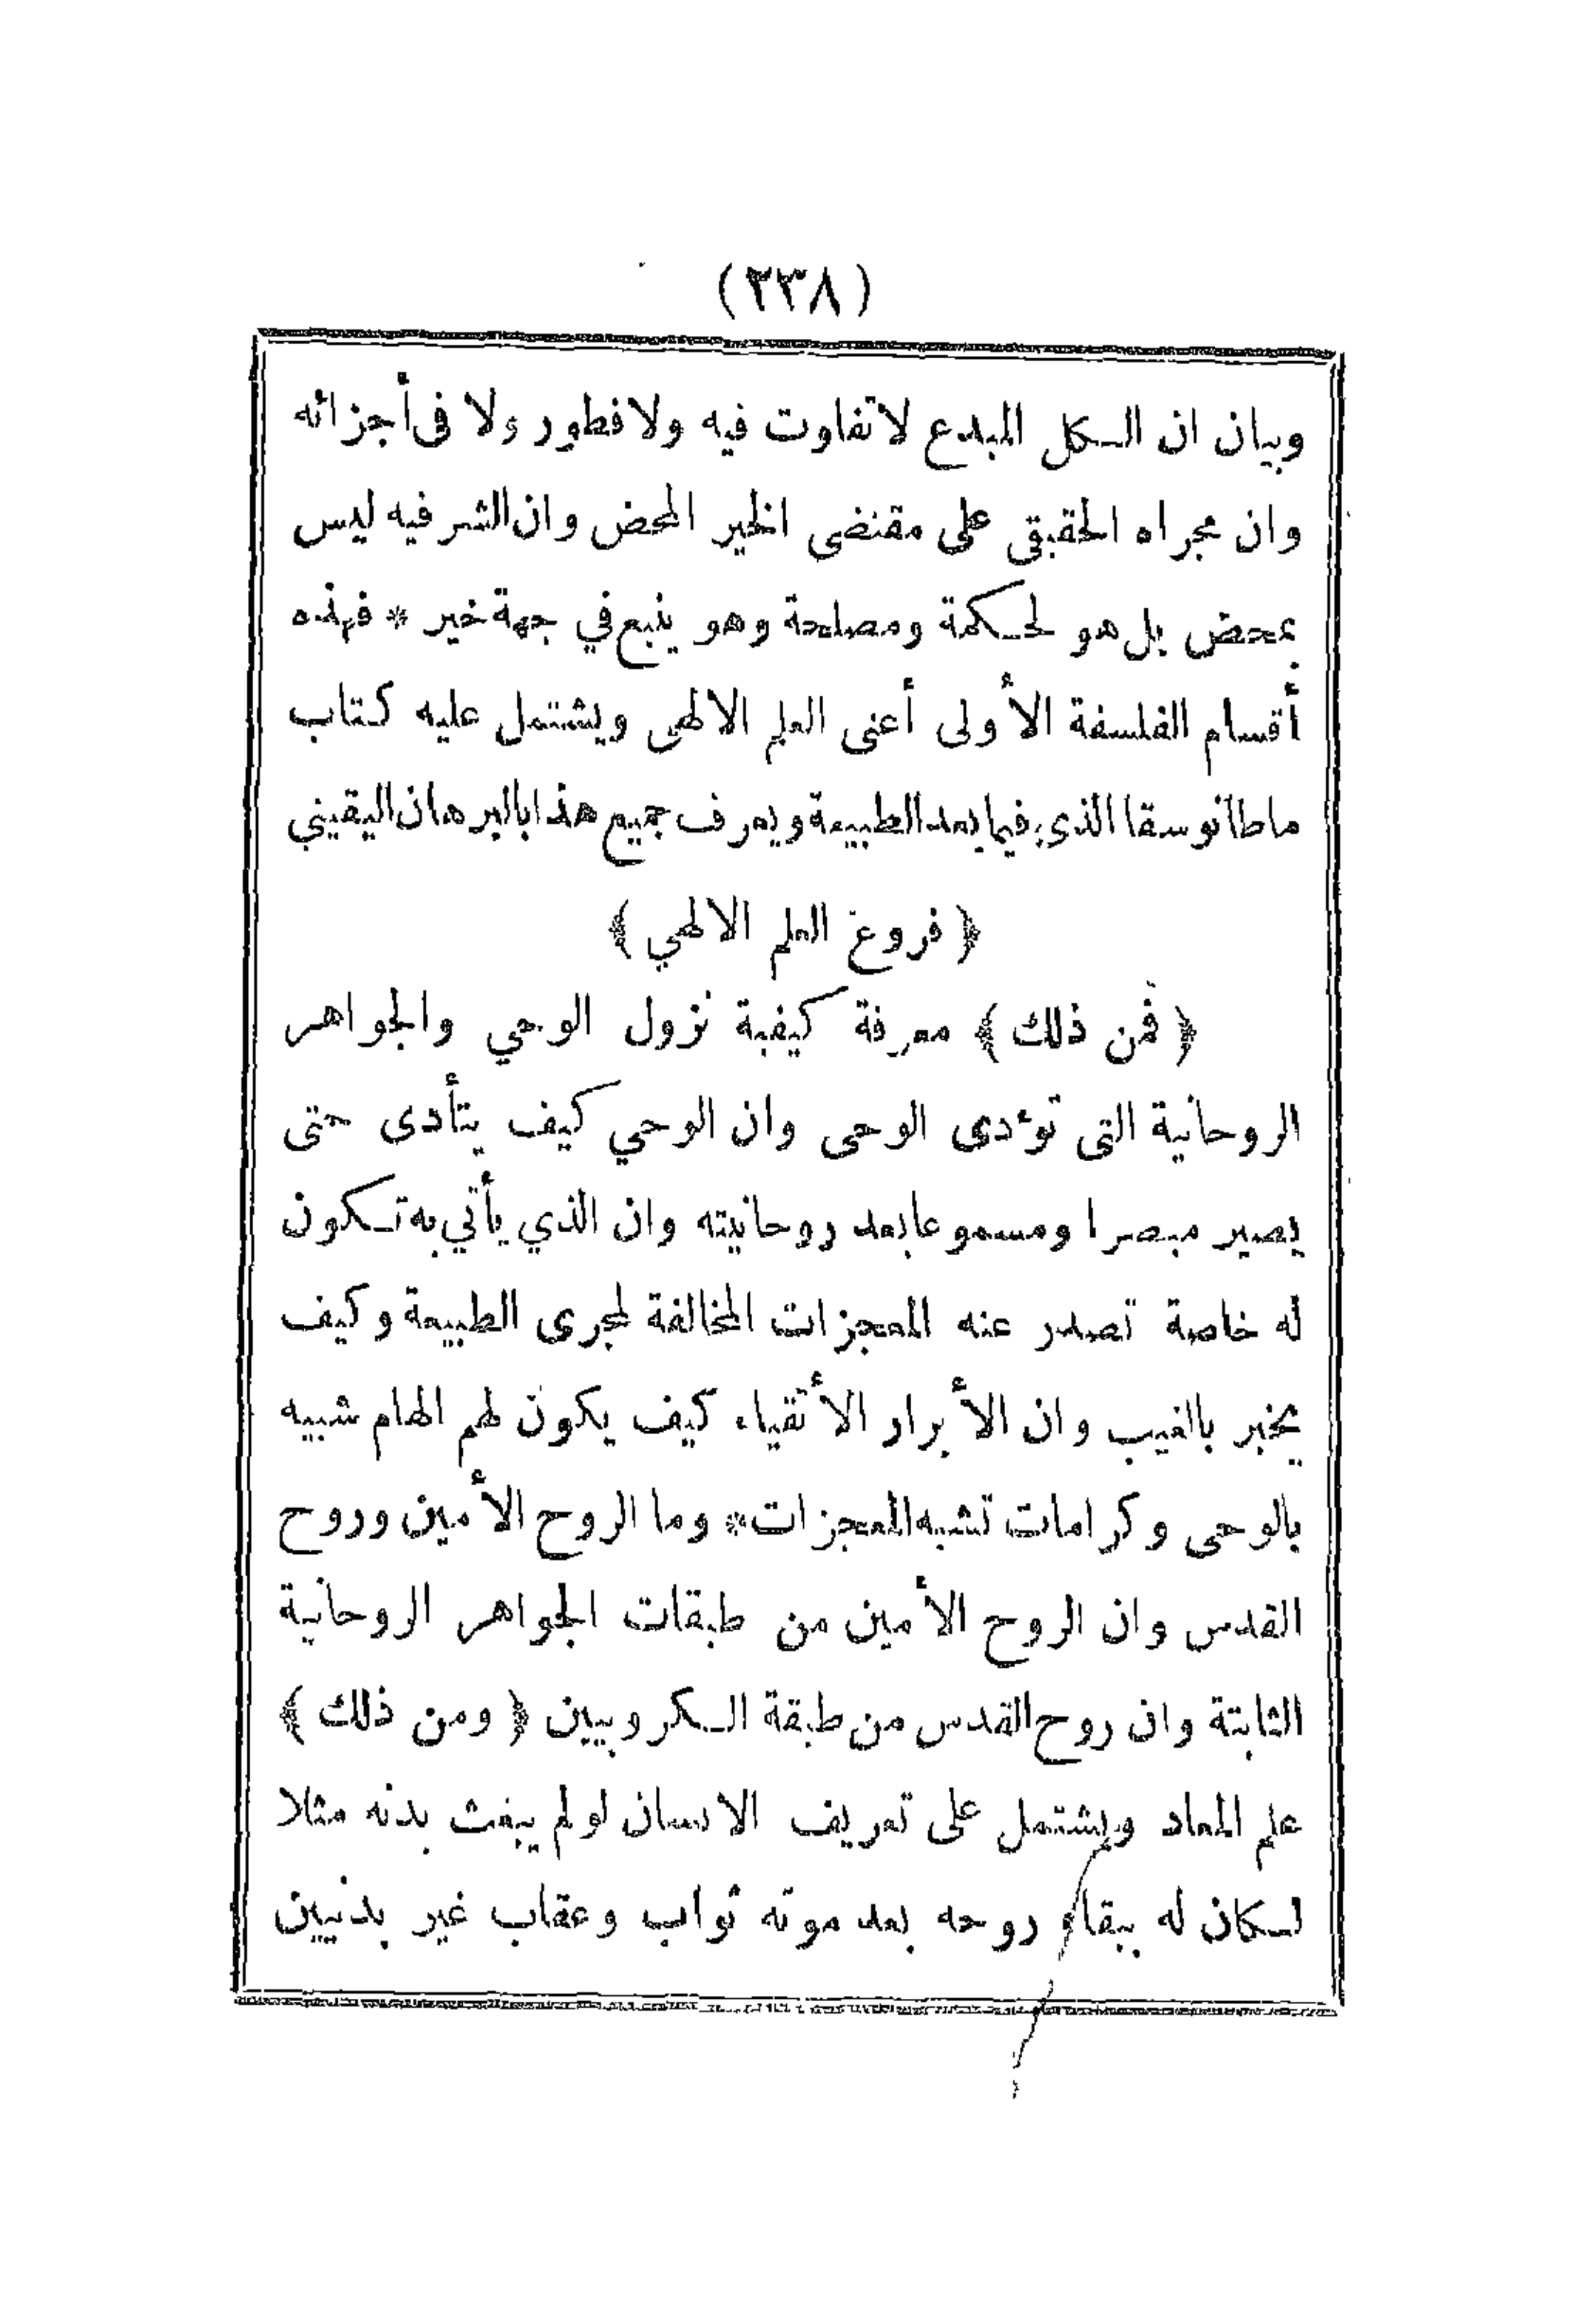 (٢٣٨)
وبيان ان الكل المبدع لاتفاوت فيه ولا فطور ولا فى أجزائه
وان مجراه الحقيقى على مقتضى الخير المحض وان الشر فيه ليس
بمحض بل هو لحكمة ومصلحة وهو ينبع في جهة خير * فهذه
أقسام الفلسفة الأولى أعنى العلم الالهى ويشتمل عليه كتاب
ماطانوسقا الذي فيما بعد الطبيعة ويعرف جميع هذا بالبرهان اليقيني
﴿ فروع العلم الالهي ﴾
﴿ فمن ذلك ﴾ معرفة كيفية نزول الوحي والجواهر
الروحانية التى تؤدى الوحى وان الوحي كيف يتأدى حتى
يصير مبصرا ومسموعا بعد روحانيته وان الذي يأتي به تكون
له خاصة تصدر عنه المعجزات المخالفة لمجرى الطبيعة وكيف
يخبر بالغيب وان الأبرار الأتقياء كيف يكون لهم الهام شبيه
بالوحى وكرامات تشبه المعجزات * وما الروح الأمين وروح
القدس وان الروح الأمين من طبقات الجواهر الروحانية
الثابتة وان روح القدس من طبقة الكروبيين ﴿ ومن ذلك ﴾
علم المعاد ويشتمل على تعريف الانسان لو لم يبعث بدنه مثلا
لكان له ببقاء روحه بعد موته ثواب وعقاب غير بدنيين